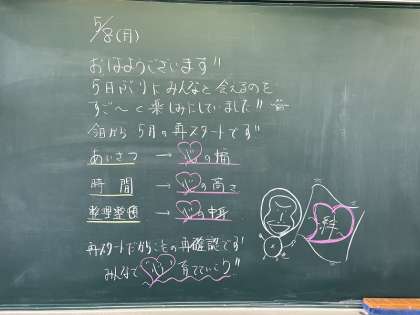 5/8(月)
おはようございます!!
5日ぶりにみんなと会えるのを
すご〜く楽しみにしていました!!
今日から5月の再スタートです!!
あいさつ → 心の幅
時間 → 心の高さ
整理整頓 → 心の中身
再スタートだからこその再確認です!!
みんなで心育てていこう
絆